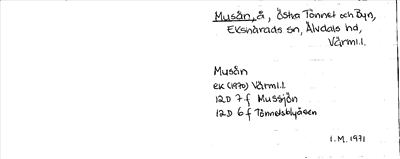 Musån, å, Östra Tönnet och Byn,
Ekshärads sn, Älvdals hd,
Värml.l.
Musån
ek (1970) Värml.l.
12D 7f Mussjön
12D 6f Tönnetsblyåsen
I.M. 1971